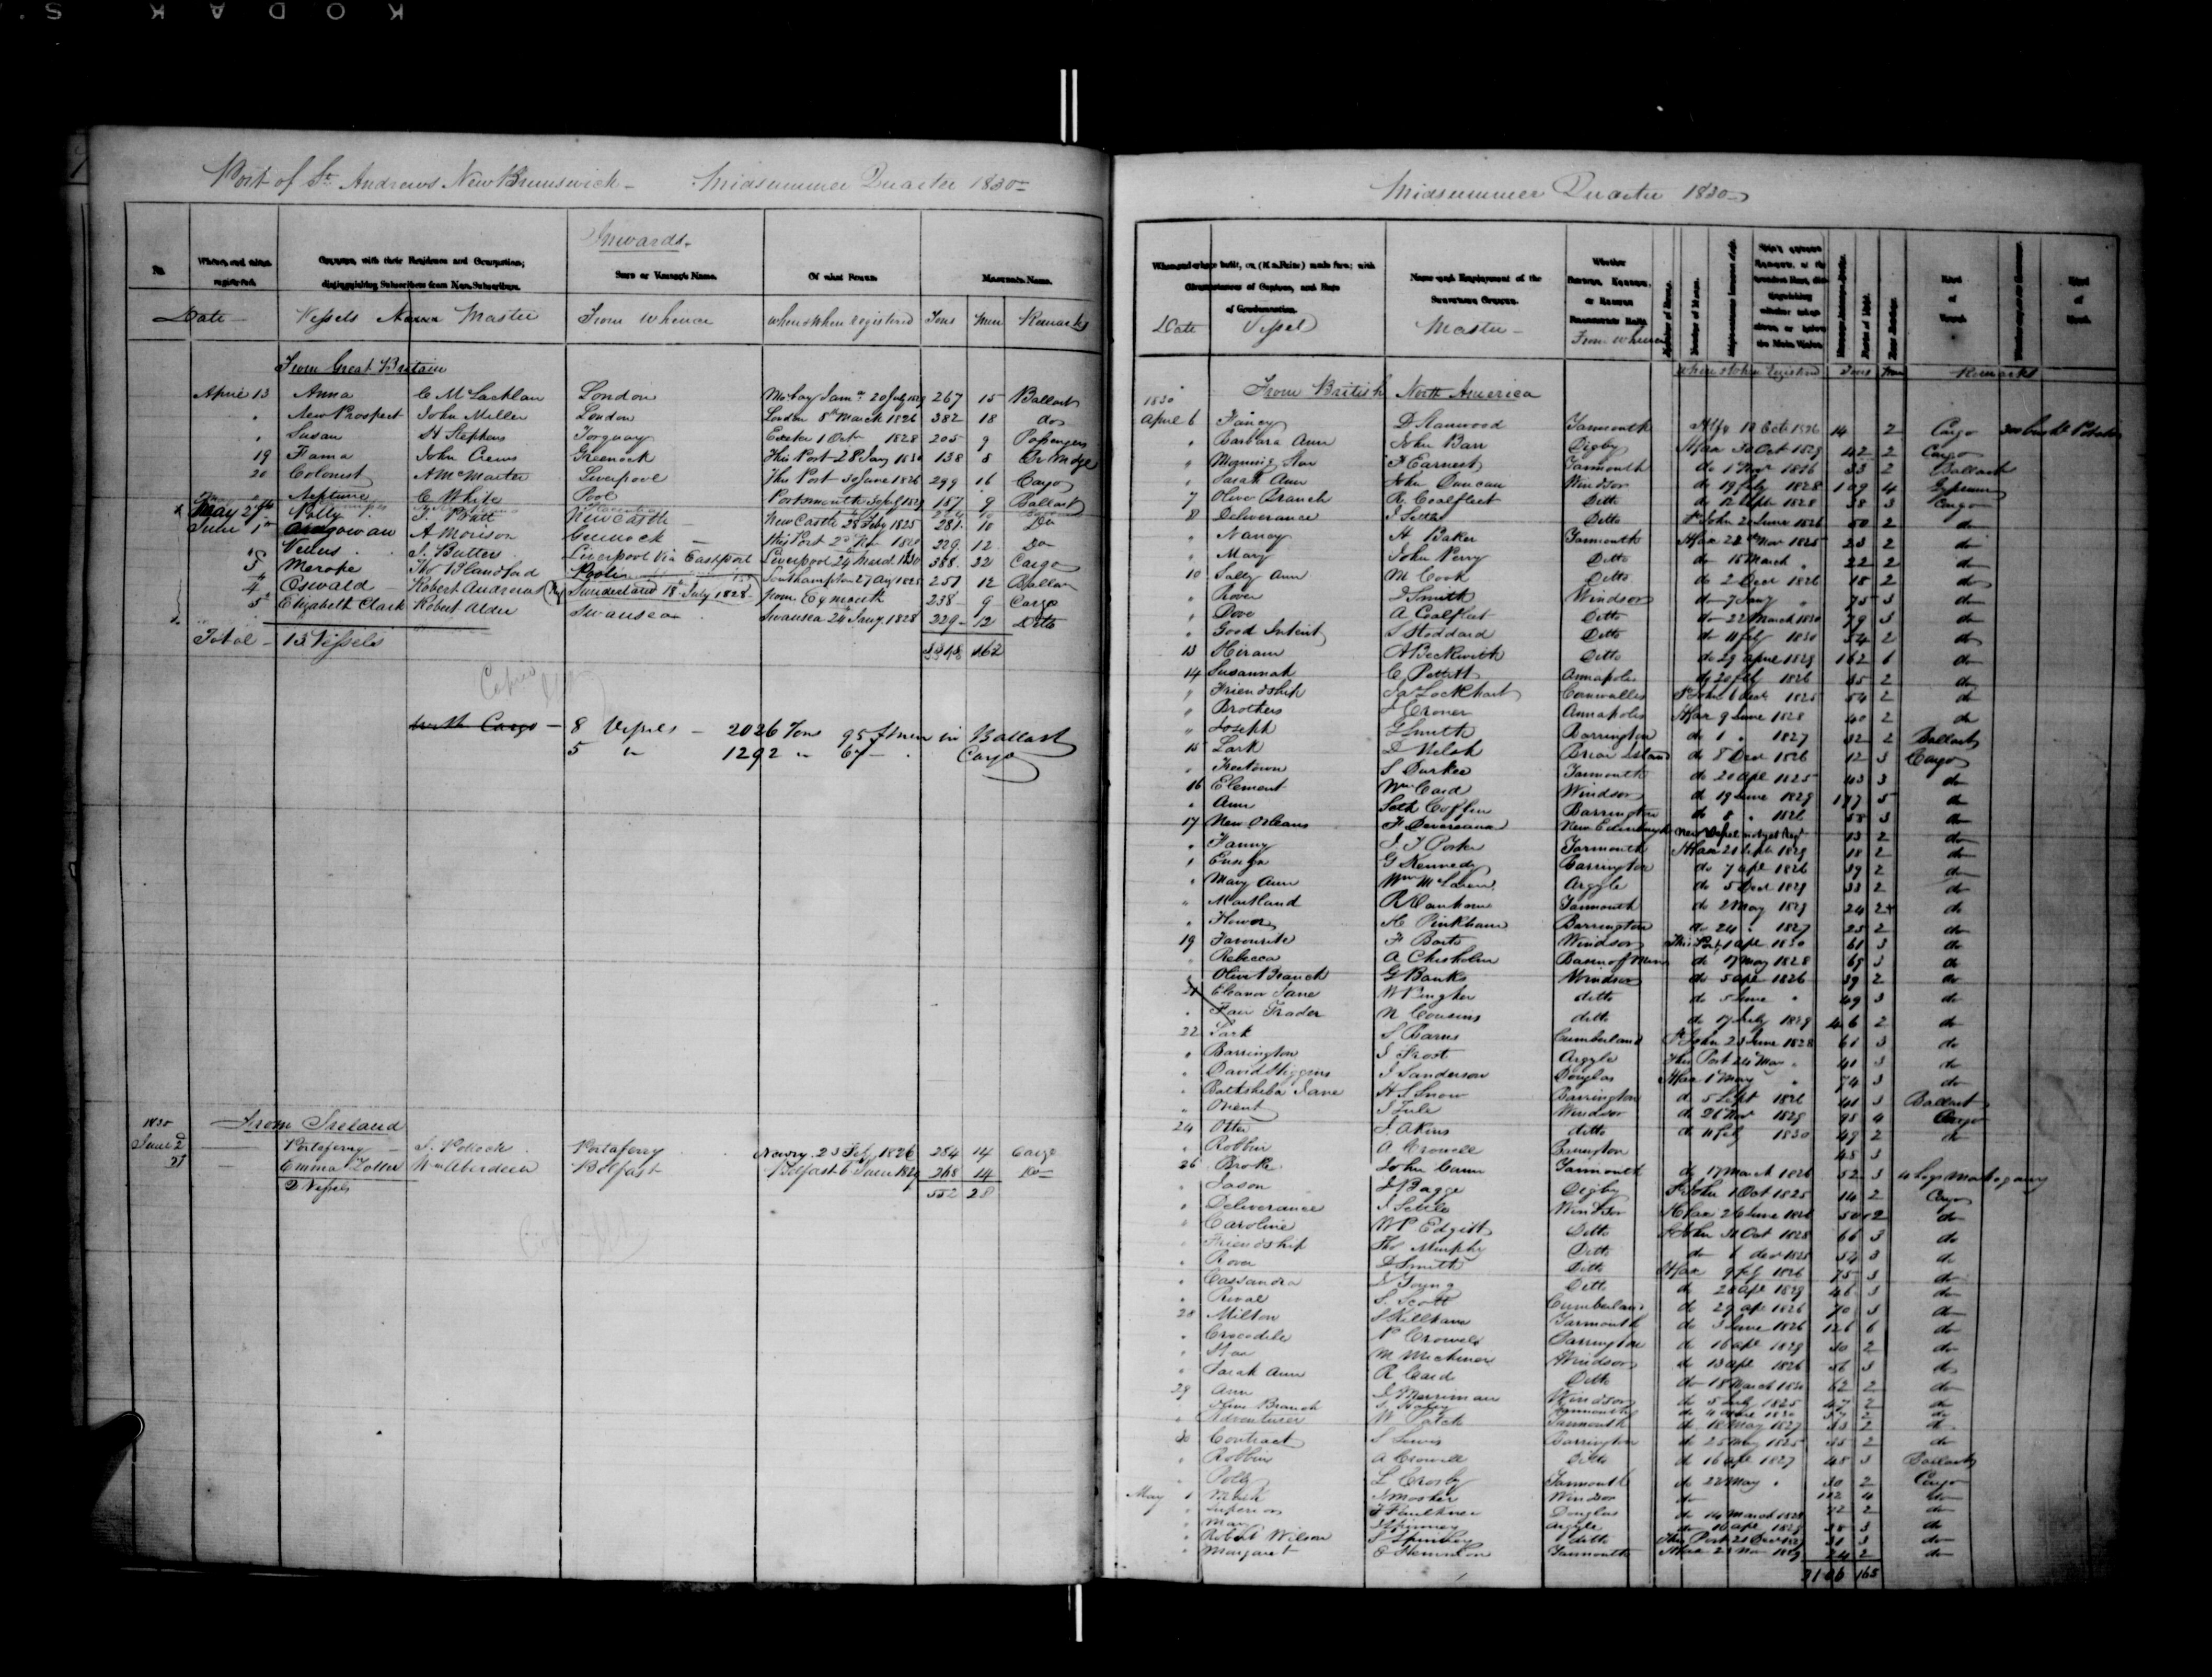 KODAK S
Port of St. Andrews New Brunswick - Midsummer Quarter 1830
Inwards.
Date Vessels Name Master From whence where & when registered Tons Men Remarks
From Great Britain
April 13 Anna C McLachlan London 267 15 Ballast
" New Prospect John Miller London London 8th March 1826 382 18 do
" Susan H Stephens Torquay Exeter 1 Oct 1828 205 9 Passengers
19 Fama John Crews Greenock This Port 28 Jany 1830 138 8
20 Colonist A McMaster Liverpool This Port 30 June 1826 299 16 Cargo
" Neptune C White Pool Portsmouth 187 9 Ballast
May 29th Polly J. Pratt New Castle New Castle 28 Feby 1825 281 10 Do
June 1st Ardgowan A Morison Greenock This Port 229 12 Do
Venus J. Butter Liverpool Via Eastport Liverpool 24 March 1830 388 22 Cargo
5 Merope Thos Blandford Poole Southampton 27 Aug 1825 257 12 Ballast
4 Oswald Robert Andrews Sunderland 18th July 1828 from Eymouth 238 9 Cargo
5 Elizabeth Clark Robert Alder Swansea Swansea 24 Jany 1828 229 12 Ditto
Total - 13 Vessels 162
with Cargo - 8 Vessels - 2026 Tons 95 Men in Ballast
5 " 1292 " 67 - Cargo
1830 From Ireland
June 2d Portaferry J. Pollock Portaferry Newry 23 Feby 1826 284 14 Cargo
Emma Zoller Wm Aberdeen Belfast Belfast 268 14 Do
2 Vessels 552 28
Midsummer Quarter 1830
Date Vessel Master From whence where & when Registered Tons Men Remarks
1830 From British North America
April 6 Fancy D Stanwood Yarmouth 14 2 Cargo
" Barbara Ann John Barr Digby Hfax 30 Oct 1829 42 2 Cargo
" Morning Star F Earnest Yarmouth do 1 Novr 1826 33 2 Ballast
" Sarah Ann John Duncan Windsor do 19 July 1828 109 4 Gypsum
7 Olive Branch R Coalfleet Ditto do 12 Septr 1828 38 3 Cargo
8 Deliverance J Settle Ditto St John 2 June 1826 50 2 do
" Nancy H Baker Yarmouth Hfax 22 Nov 1825 23 2 do
" Mary John Perry Ditto do 15 March " 22 2 do
10 Sally Ann M Cook Ditto do 2 Decr 1826 18 2 do
" Rover D Smith Windsor do 7 Jany " 75 3 do
" Dove A Coalfleet Ditto do 22 March 1830 79 3 do
" Good Intent S Stoddard Ditto do 11 Feby 1830 54 2 do
13 Hiram A Beckwith Ditto do 29 April 1829 162 6 do
14 Susannah C Pettitt Annapolis do 20 Feby 1826 35 2 do
" Friendship Jas Lockhart Cornwallis St John 6 Decr 1825 54 2 do
" Brothers J Croner Annapolis Hfax 9 June 1828 40 2 do
" Joseph G Smith Barrington do 1 " 1827 32 2 Ballast
15 Lark D Welsh Briar Island do 8 Decr 1826 12 3 Cargo
" Freetown S Durkee Yarmouth do 20 Apl 1825 43 3 do
16 Element Wm Card Windsor do 19 June 1829 5 do
" Ann Seth Coffin Barrington do 8 " 1826 58 3 do
17 New Orleans F Devereaux New Edinburgh new Vessel not yet Regd 13 2 do
" Fanny J T Porter Yarmouth Hfax 21 Septr 1829 18 2 do
" Ensign G Kennedy Barrington do 7 apl 1826 39 2 do
" Mary Ann Wm McLaren Argyle do 5 Decr 1829 33 2 do
" Maitland Yarmouth do 2 May 1829 24 do
" Flower H Pinkham Barrington do 24 " 1827 25 2 do
19 Favourite F Boits Windsor This Port 1 apl 1830 61 3 do
" Rebecca A Chisholm Basin of Mines do 17 May 1828 65 3 do
" Olive Branch G Banks Windsor do 5 apl 1826 39 2 do
21 Eleanor Jane ditto do 5 June " 49 3 do
" Fair Trader N Cousins ditto do 17 July 1829 46 2 do
22 Lark S Barns Cumberland St John 23 June 1828 61 3 do
" Barrington J Frost Argyle This Port 24 May " 41 3 do
" David Higgins J Sanderson Douglas Hfax 1 May " 74 3 do
" Bathsheba Jane H S Snow Barrington do 5 Sept 1826 41 3 Ballast
" Orient J Tule Windsor do 26 Nov 1829 95 4 Cargo
24 Otter J. Akins ditto do 11 Feby 1830 49 2 do
" Robbin A Crowell Barrington 45 3
26 Broke John Cann Yarmouth do 17 March 1826 52 3 4 Logs Mahogany
" Jason J Bagge Digby St John 1 Oct 1825 14 2 Cargo
" Deliverance J Settle Windsor Hfax 26 June 1826 50 2 do
" Caroline W P Edgitt Ditto St John 31 Oct 1828 66 3 do
" Friendship Thos Murphy Ditto do 6 decr 1825 54 3 do
" Rover D Smith Ditto Hfax 9 Feby 1826 75 3 do
" Cassandra J Young Ditto do 20 apl 1829 46 3 do
" Rival S. Scott Cumberland do 29 apl 1826 70 3 do
28 Milton S Killham Yarmouth do 3 June 1826 126 6 do
" Crocodile P Crowell Barrington do 16 apl 1829 30 2 do
" Star M Michener Windsor do 13 apl 1826 56 3 do
" Sarah Ann R Card Ditto do 18 March 1830 62 2 do
29 Ann J Merriman Windsor do 5 July 1825 47 2 do
Olive Branch Yarmouth 2 do
" Adventurer W Patch Yarmouth do 18 May 1827 33 2 do
30 Contract S Lewis Barrington do 25 May 1825 35 2 do
" Robbin A Crowell Ditto do 16 apl 1827 45 3 Ballast
" Polly L Crosby Yarmouth do 22 May " 30 2 Cargo
May 1 J Mosher Windsor do 4 do
" Superior F Faulkner Douglas do 14 March 1828 72 2 do
" Mary J Spinney Argyle do 16 apl 1829 38 3 do
" Robert Wilson S Spinney ditto This Port 21 Decr 31 3 do
" Margaret Yarmouth Hfax 2 Nov 1829 24 2 do
165